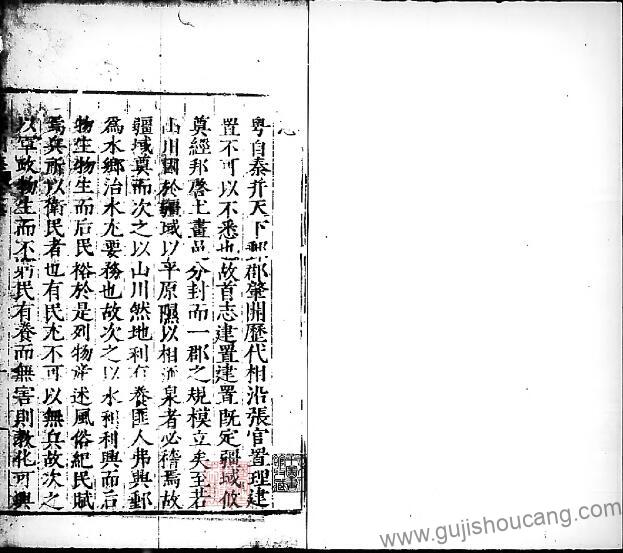 粤自秦并天下鄞郡肇開歷代相沿張官置理建
置不可以不悉也故首志建置建置既定疆域攸
奠經邦啓土畫邑分封而一郡之規模立矣至若
山川囿於疆域以平原隰以相流泉者必稽焉故
疆域奠而次之以山川然地利有養匪人弗興鄞
為水鄉治水尤要務也故次之以水利利興而后
物生物生而后民裕於是列物產述風俗紀民賦
焉兵所以衛民者也有民尤不可以無兵故次之
以軍政物生而不窮民有養而無害則教化可興
www.gujishoucang.com